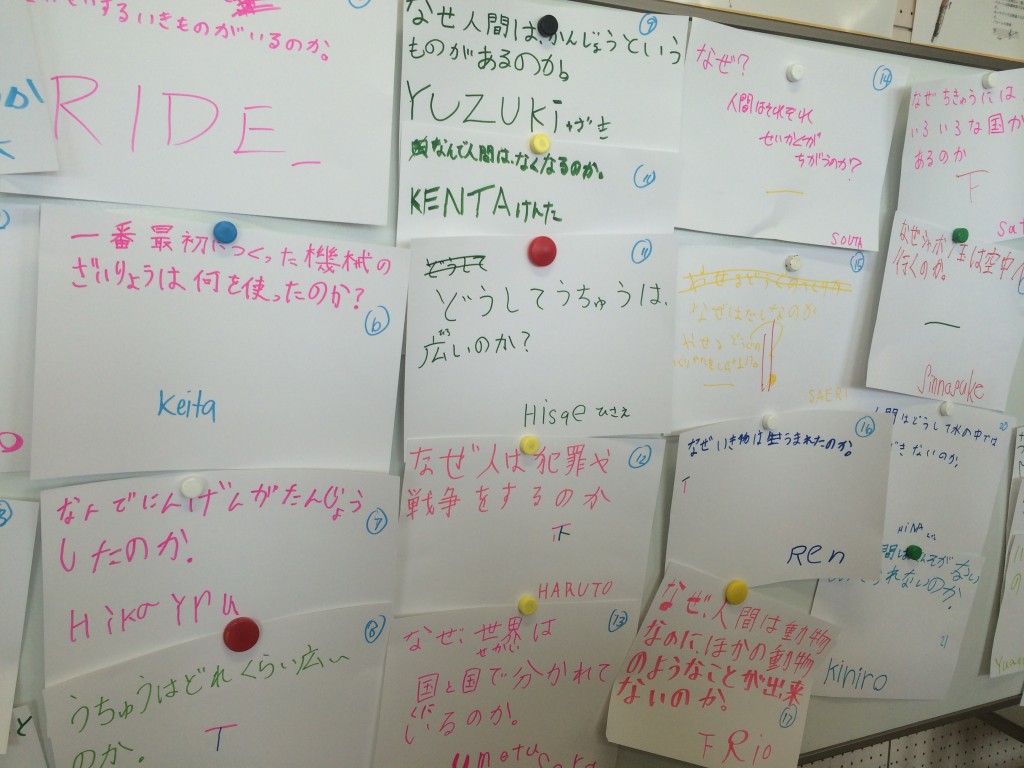 いきものがいるのか。
RIDE
一番最初につくった機械の
ざいりょうは何を使ったのか?
6
Keita
なんでにんげんがたんじょう
したのか.
7
Hikaryu
8
うちゅうはどれくらい広い
のか.
T
9
なぜ人間はかんじょうという
ものがあるのか。
YUZUKi ゆづき
なんで人間は、なくなるのか。
KENTAけんた
11
どうしてうちゅうは、
広いのか?
Hisae ひさえ
なぜ人は犯罪や
12
戦争をするのか
下
HARUTO
13
なぜ、世界は
せかい
国と国で分かれて
くに
いるのか。
14
なぜ?
人間はそれぞれ
せいかくが
ちがうのか?
SOUTA
15
SAERI
16
なぜいき物は生うまれたのか。
T
Ren
なぜ、人間は動物
なのに、ほかの動物
のようなことが出来
ないのか。
17
下 Rio
なぜちきゅうには
いろいろな国が
あるのか
下
なぜシャボン玉は空中
行くのか。
Sinnosuke
20
間はどうして水の中では
できないのか.
HiNA
21
られないのか.
Kiniro